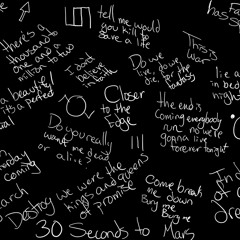 tell me would
you kill to
save a life
has
S
there's a
thousand to
one and a
million to two
I don't
believe
in faith
Do we
live, do we
die, for the
This is
War
lie a
in bed
night
a beautiful
to a perfect
Closer
to the
Edge
the end is
coming everybody
run now we're
gonna live
forever tonight
Do you really
want me dead
or alive
coming
arch
Destroy
we were the
kings and queens
of promise
come break
me down
Bury me
Bury me
30 Seconds to Mars